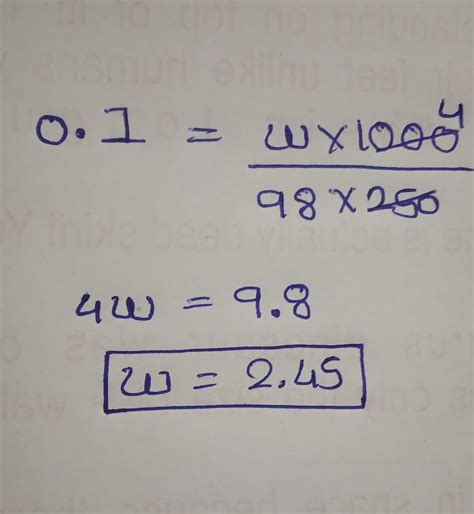 0.1 = w×1000 4
98×250
4w = 9.8
w = 2.45